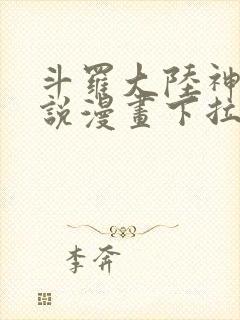 斗羅大陸神
說漫畫下拉
李奔